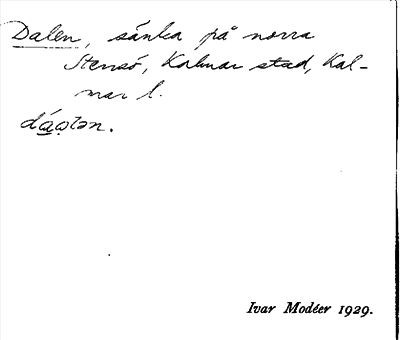 Dalen, sänka på norra
Stensö, Kalmar stad, Kal-
mar l.
Ivar Modéer 1929.